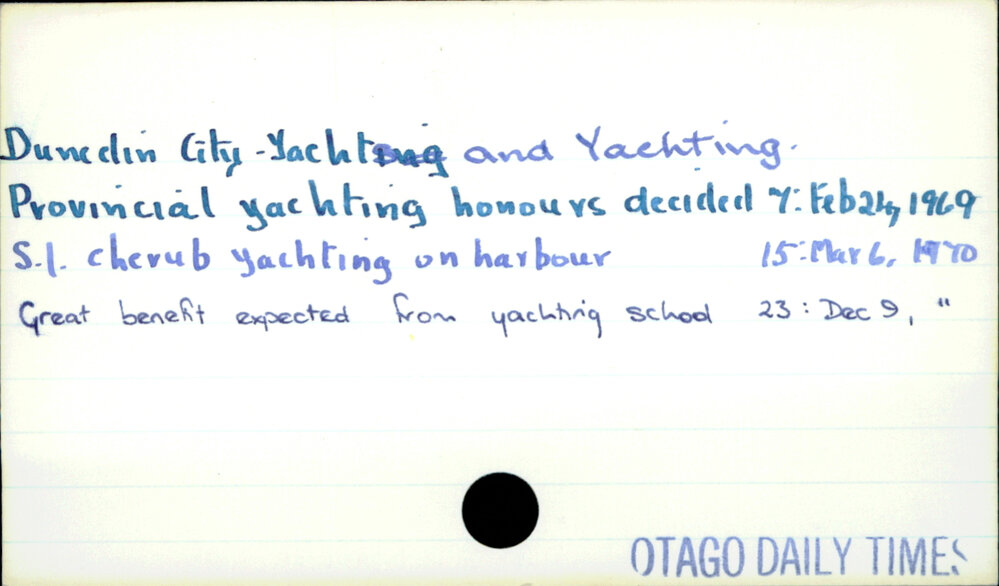 Dunedin City - Yachts and Yachting.
Provincial yachting honours decided 7: Feb 24, 1969
S.I. cherub yachting on harbour 15: Mar 6, 1970
Great benefit expected from yachting school 23: Dec 9, "
OTAGO DAILY TIMES